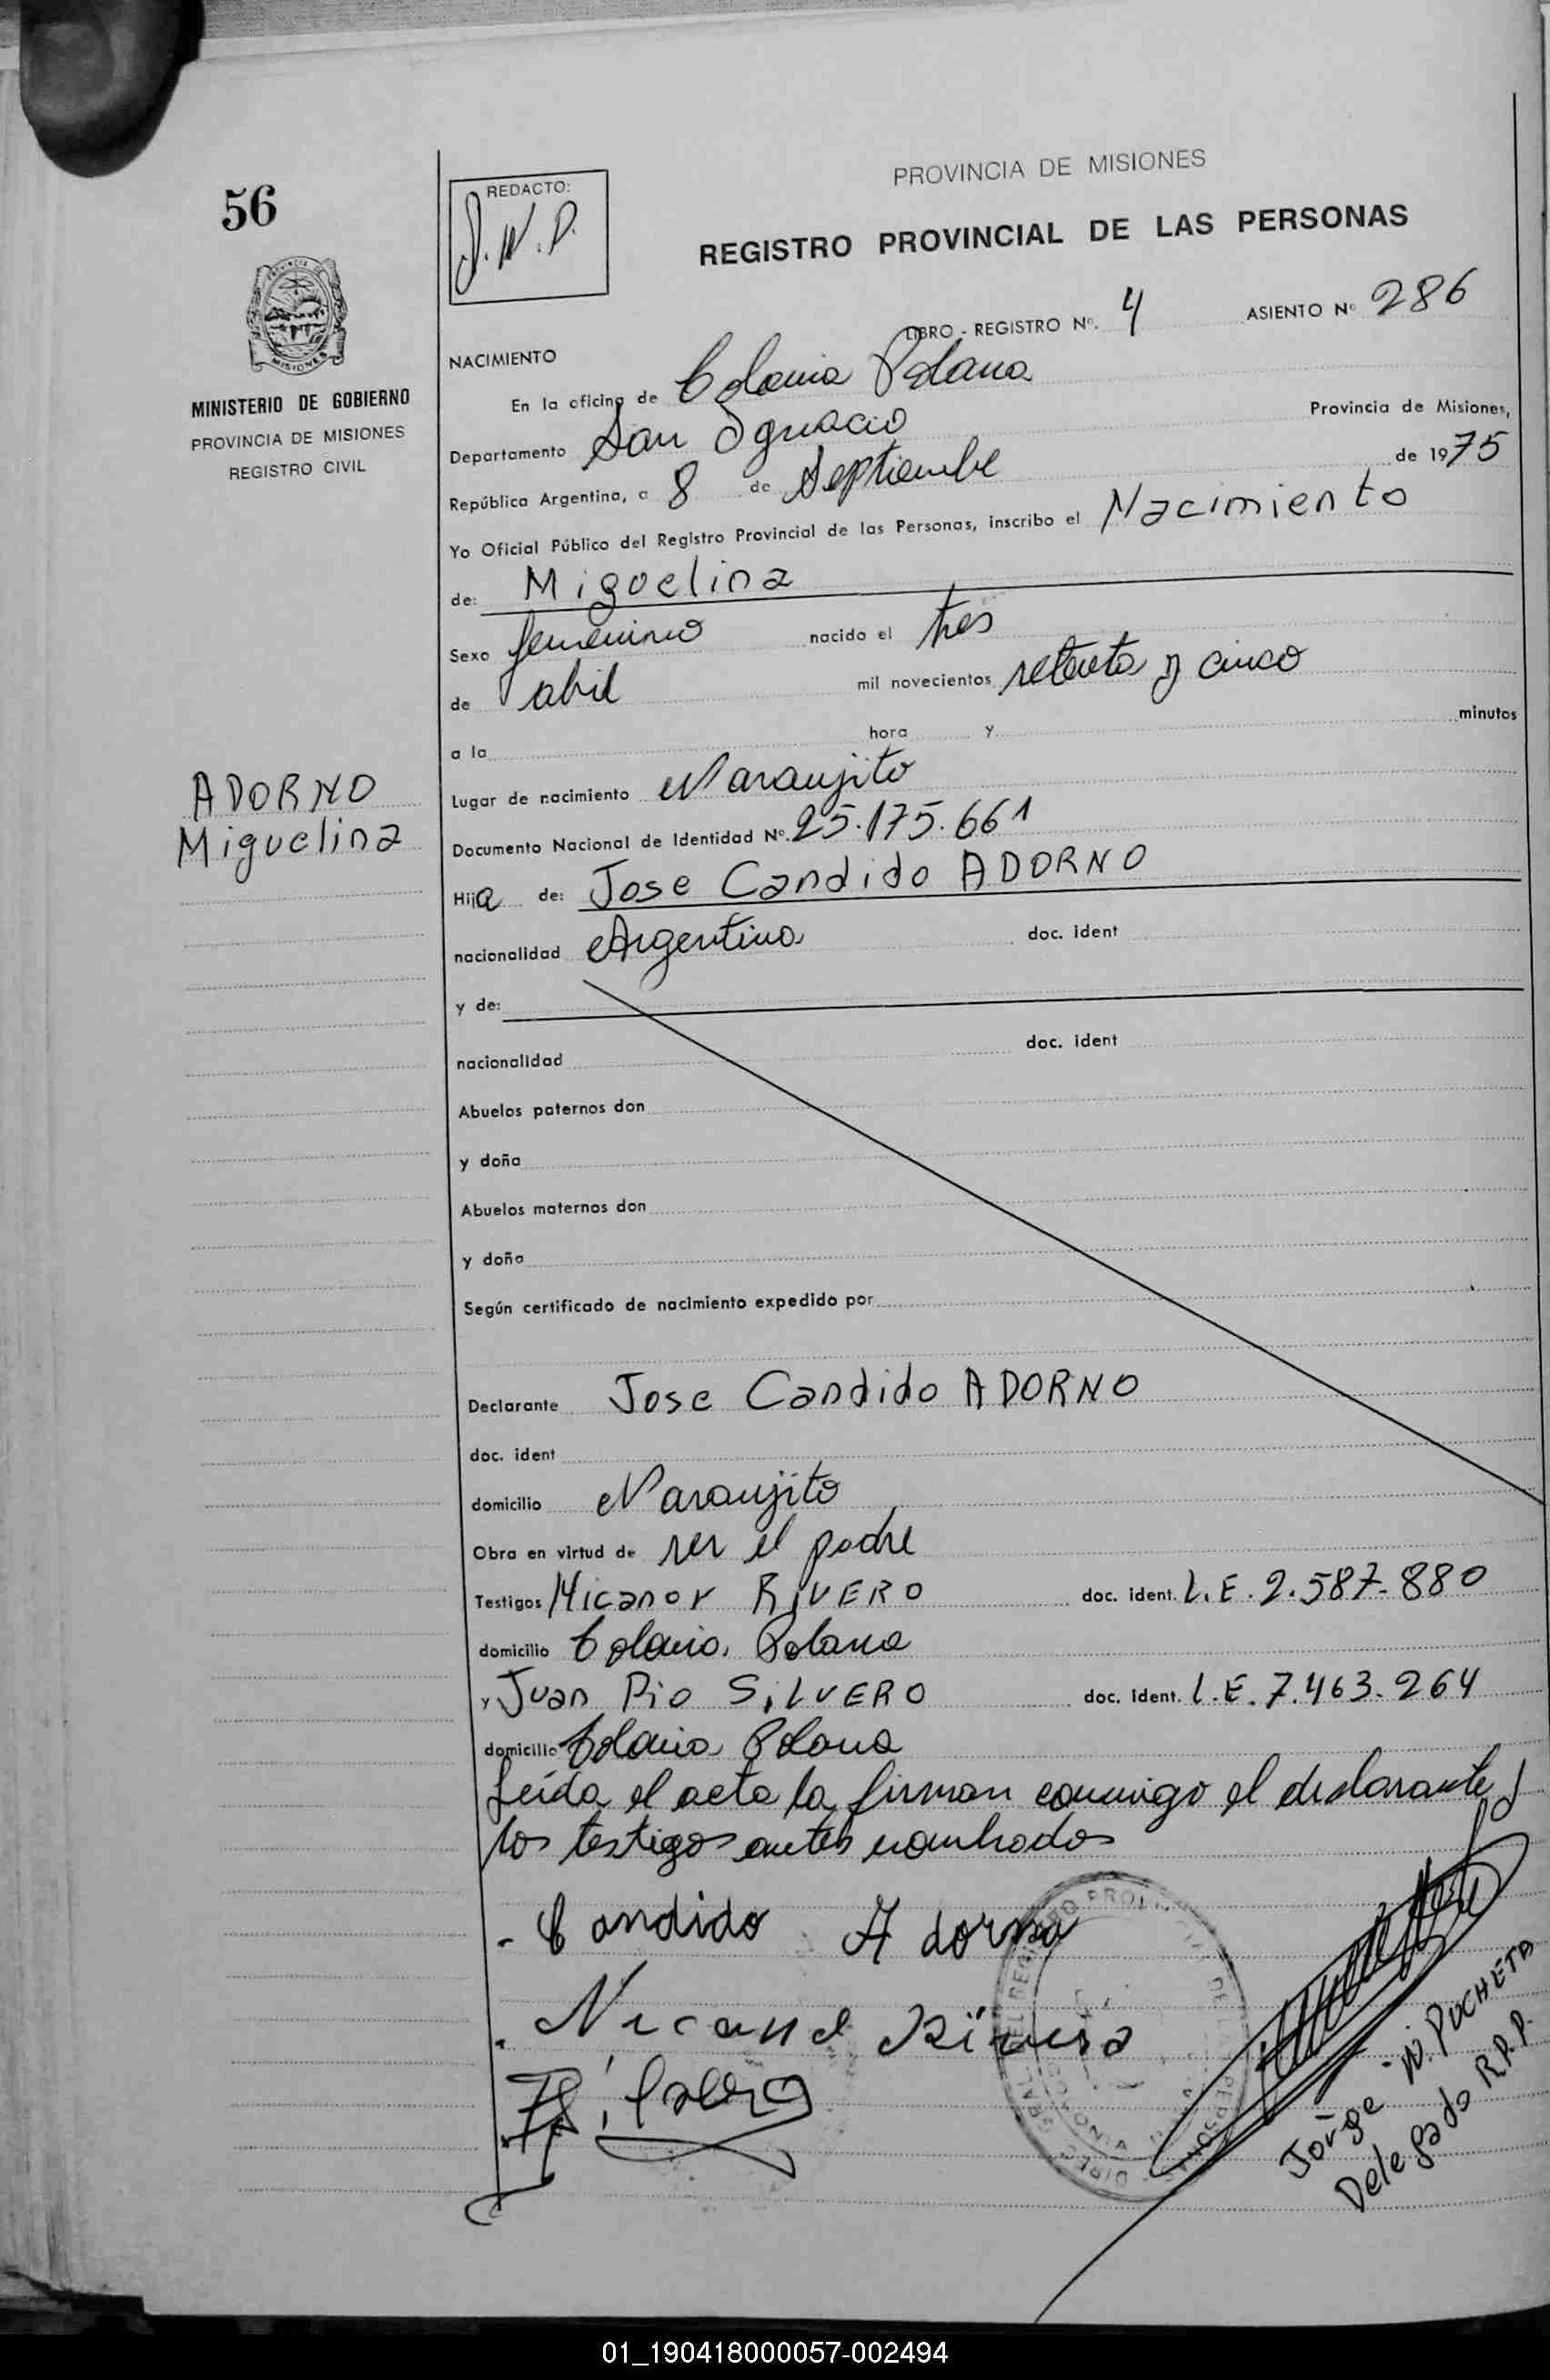 56
REDACTO:
J.W.P.
PROVINCIA DE MISIONES
REGISTRO PROVINCIAL DE LAS PERSONAS
LIBRO - REGISTRO Nº. 4 ASIENTO Nº 286
MISIONES
MINISTERIO DE GOBIERNO
PROVINCIA DE MISIONES
REGISTRO CIVIL
NACIMIENTO
En la oficina de Colonia Polana
Departamento San Ignacio Provincia de Misiones,
República Argentina, a 8 de Septiembre de 1975
Yo Oficial Público del Registro Provincial de las Personas, inscribo el Nacimiento
de: Miguelina
Sexo femenino nacido el tres
de abril mil novecientos setenta y cinco
a la hora y minutos
Lugar de nacimiento Naranjito
ADORNO
Miguelina
Documento Nacional de Identidad Nº. 25.175.661
Hija de: Jose Candido ADORNO
nacionalidad Argentina doc. ident
y de:
nacionalidad doc. ident
Abuelos paternos don
y doña
Abuelos maternos don
y doña
Según certificado de nacimiento expedido por
Declarante Jose Candido ADORNO
doc. ident
domicilio Naranjito
Obra en virtud de ser el padre
Testigos Nicanor RIVERO doc. ident. L.E. 2.587.880
domicilio Colonia Polana
y Juan Pio SILVERO doc. ident. L.E. 7.463.264
domicilio Colonia Polana
Leída el acta la firman conmigo el declarante y
los testigos antes nombrados
- Candido Adorno
Jorge W. PUCHETA
Delegado R.P.P.
01_190418000057-002494